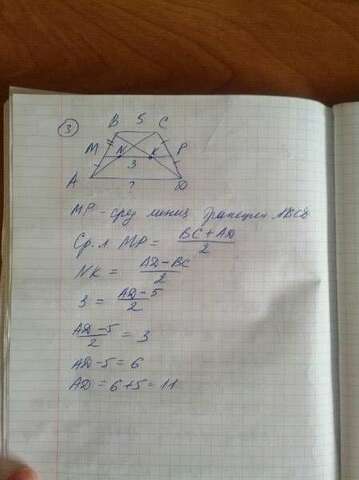 3
B 5 C
M N K P
3
A ? D
MP - сред линия трапеции ABCD
Ср. л MP = BC + AD / 2
NK = AD - BC / 2
3 = AD - 5 / 2
AD - 5 / 2 = 3
AD - 5 = 6
AD = 6 + 5 = 11